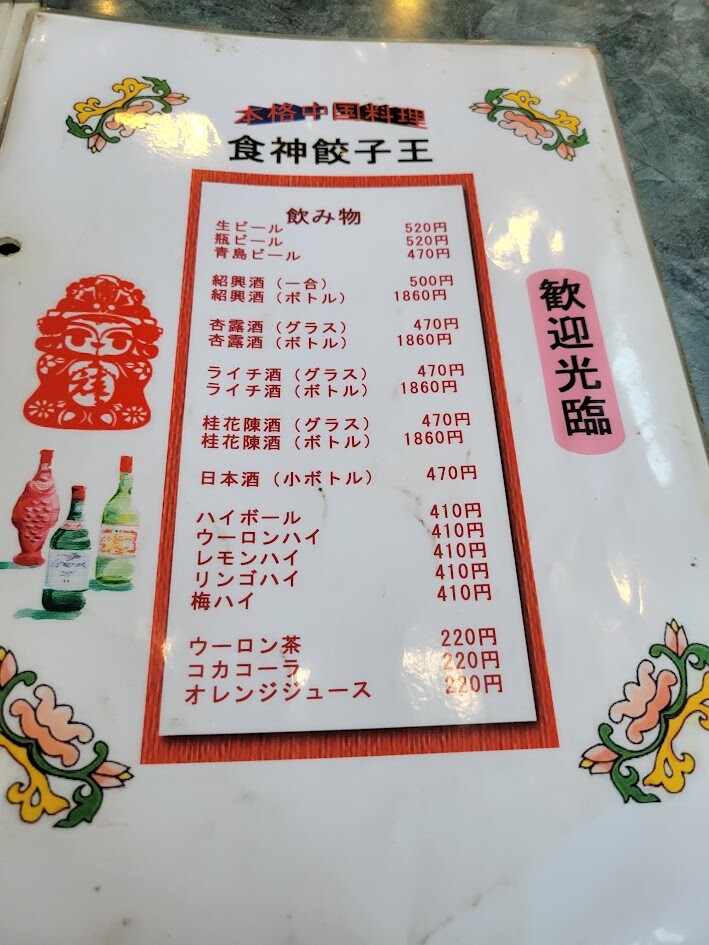 本格中国料理
食神餃子王
飲み物
生ビール 520円
瓶ビール 520円
青島ビール 470円
紹興酒（一合） 500円
紹興酒（ボトル） 1860円
杏露酒（グラス） 470円
杏露酒（ボトル） 1860円
ライチ酒（グラス） 470円
ライチ酒（ボトル） 1860円
桂花陳酒（グラス） 470円
桂花陳酒（ボトル） 1860円
日本酒（小ボトル） 470円
ハイボール 410円
ウーロンハイ 410円
レモンハイ 410円
リンゴハイ 410円
梅ハイ 410円
ウーロン茶 220円
コカコーラ 220円
オレンジジュース 220円
歓迎光臨